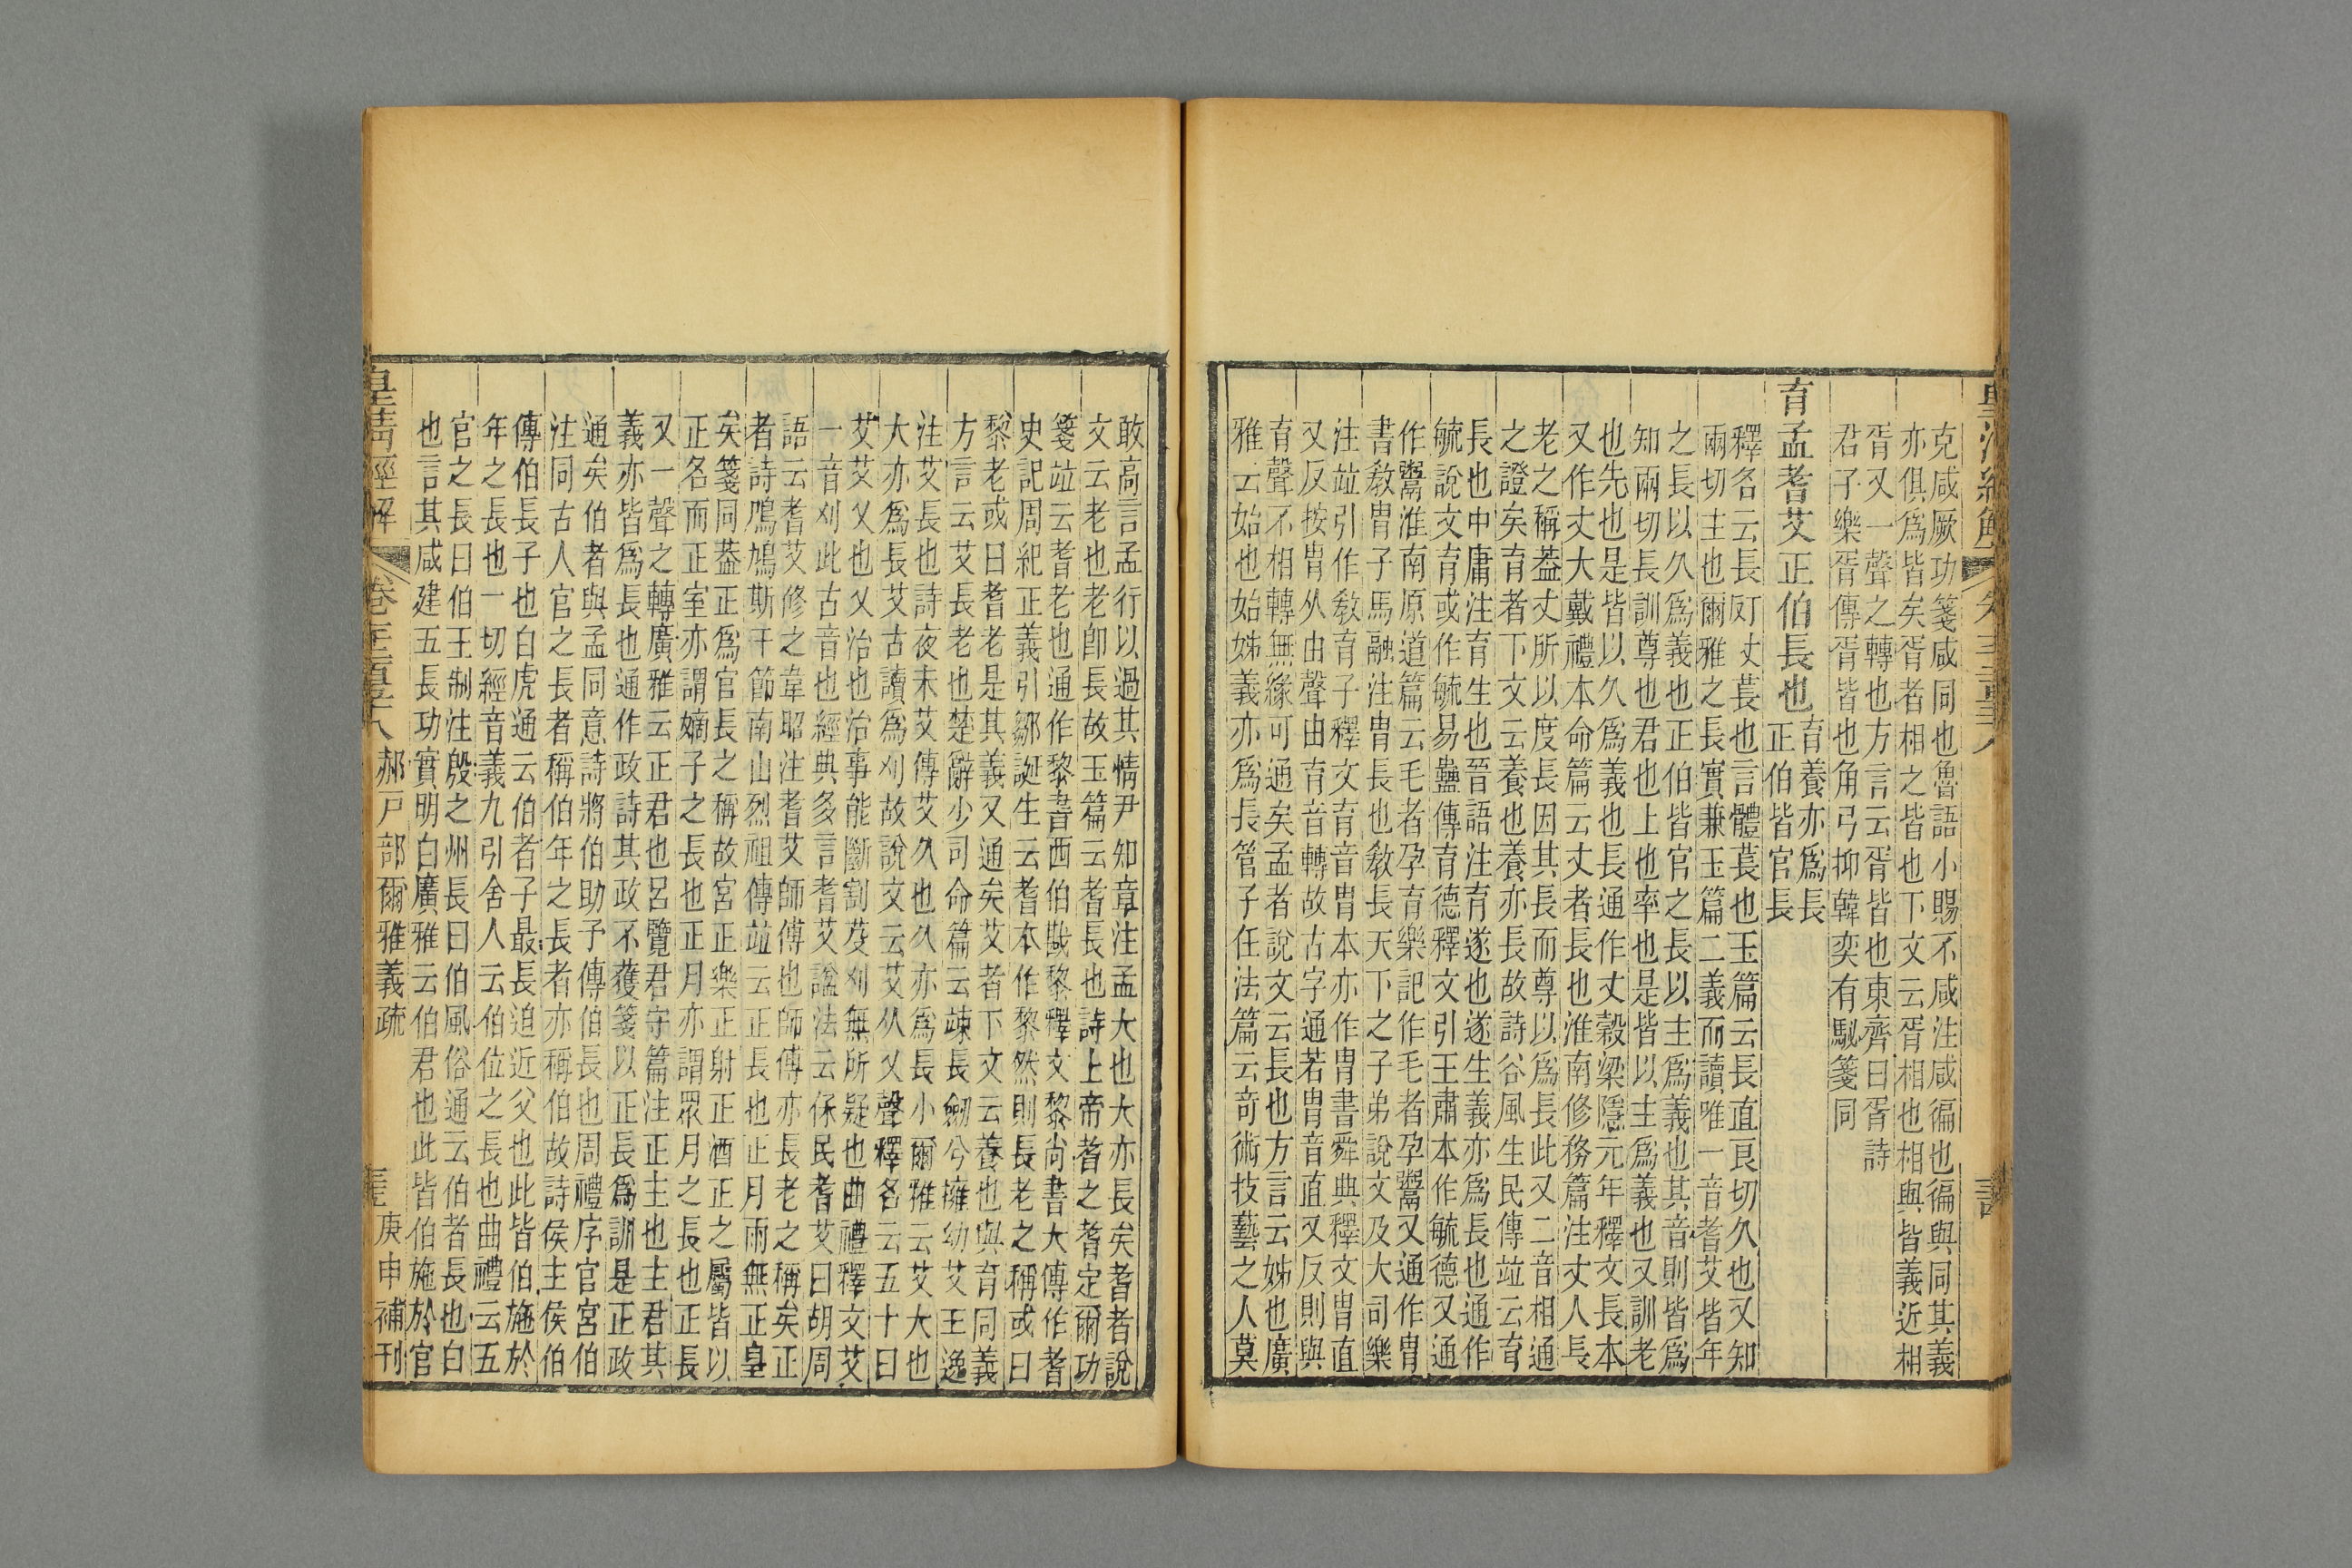 皇清經解
卷
詁
克咸厥功箋咸同也魯語小賜不咸注咸徧也徧與同其義
亦俱爲皆矣胥者相之皆也下文云胥相也相與皆義近相
胥又一聲之轉也方言云胥皆也東齊曰胥詩
君子樂胥傳胥皆也角弓抑韓奕有駜箋同
育孟耆艾正伯長也
育養亦爲長
正伯皆官長
釋名云長㞡丈萇也言體萇也玉篇云長直良切久也又知
兩切主也爾雅之長實兼玉篇二義而讀唯一音耆艾皆年
之長以久爲義也正伯皆官之長以主爲義也其音則皆爲
知兩切長訓尊也君也上也率也是皆以主爲義也又訓老
也先也是皆以久爲義也長通作丈穀梁隱元年釋文長本
又作丈大戴禮本命篇云丈者長也淮南修務篇注丈人長
老之稱葢丈所以度長因其長而尊以爲長此又二音相通
之證矣育者下文云養也養亦長故詩谷風生民傳竝云育
長也中庸注育生也晉語注育遂也遂生義亦爲長也通作
毓說文育或作毓易蠱傳育德釋文引王肅本作毓德又通
作鬻淮南原道篇云毛者孕育樂記作毛者孕鬻又通作冑
書敎冑子馬融注冑長也敎長天下之子弟說文及大司樂
注竝引作敎育子釋文育音冑本亦作冑書舜典釋文冑直
又反按冑从由聲由育音轉故古字通若冑音直又反則與
育聲不相轉無緣可通矣孟者說文云長也方言云姊也廣
雅云始也始姊義亦爲長管子任法篇云奇術技藝之人莫
敢高言孟行以過其情尹知章注孟大也大亦長矣耆者說
文云老也老卽長故玉篇云耆長也詩上帝耆之耆定爾功
箋竝云耆老也通作黎書西伯戡黎釋文黎尚書大傳作耆
史記周紀正義引鄒誕生云耆本作黎然則長老之稱或曰
黎老或曰耆老是其義又通矣艾者下文云養也與育同義
方言云艾長老也楚辭少司命篇云竦長劒兮擁幼艾王逸
注艾長也詩夜未艾傳艾久也久亦爲長小爾雅云艾大也
大亦爲長艾古讀爲刈故說文云艾从乂聲釋名云五十曰
艾艾乂也乂治也治事能斷割芟刈無所疑也曲禮釋文艾
一音刈此古音也經典多言耆艾諡法云保民耆艾曰胡周
語云耆艾修之韋昭注耆艾師傅也師傅亦長老之稱矣正
者詩鳲鳩斯干節南山烈祖傳竝云正長也正月雨無正皇
矣箋同葢正爲官長之稱故宮正樂正射正酒正之屬皆以
正名而正室亦謂嫡子之長也正月亦謂眾月之長也正長
又一聲之轉廣雅云正君也呂覽君守篇注正主也主君其
義亦皆爲長也通作政詩其政不獲箋以正長爲訓是正政
通矣伯者與孟同意詩將伯助予傳伯長也周禮序官宮伯
注同古人官之長者稱伯年之長者亦稱伯故詩侯主侯伯
傳伯長子也白虎通云伯者子最長迫近父也此皆伯施於
年之長也一切經音義九引舍人云伯位之長也曲禮云五
官之長曰伯王制注殷之州長曰伯風俗通云伯者長也白
也言其咸建五長功實明白廣雅云伯君也此皆伯施於官
皇清經解
郝戶部爾雅義疏
庚申補刊